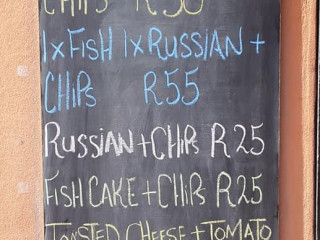 CHIPS R50
1xFISH 1xRUSSIAN +
CHIPS R55
RUSSIAN + CHIPS R25
FISH CAKE + CHIPS R25
TOASTED CHEESE + TOMATO